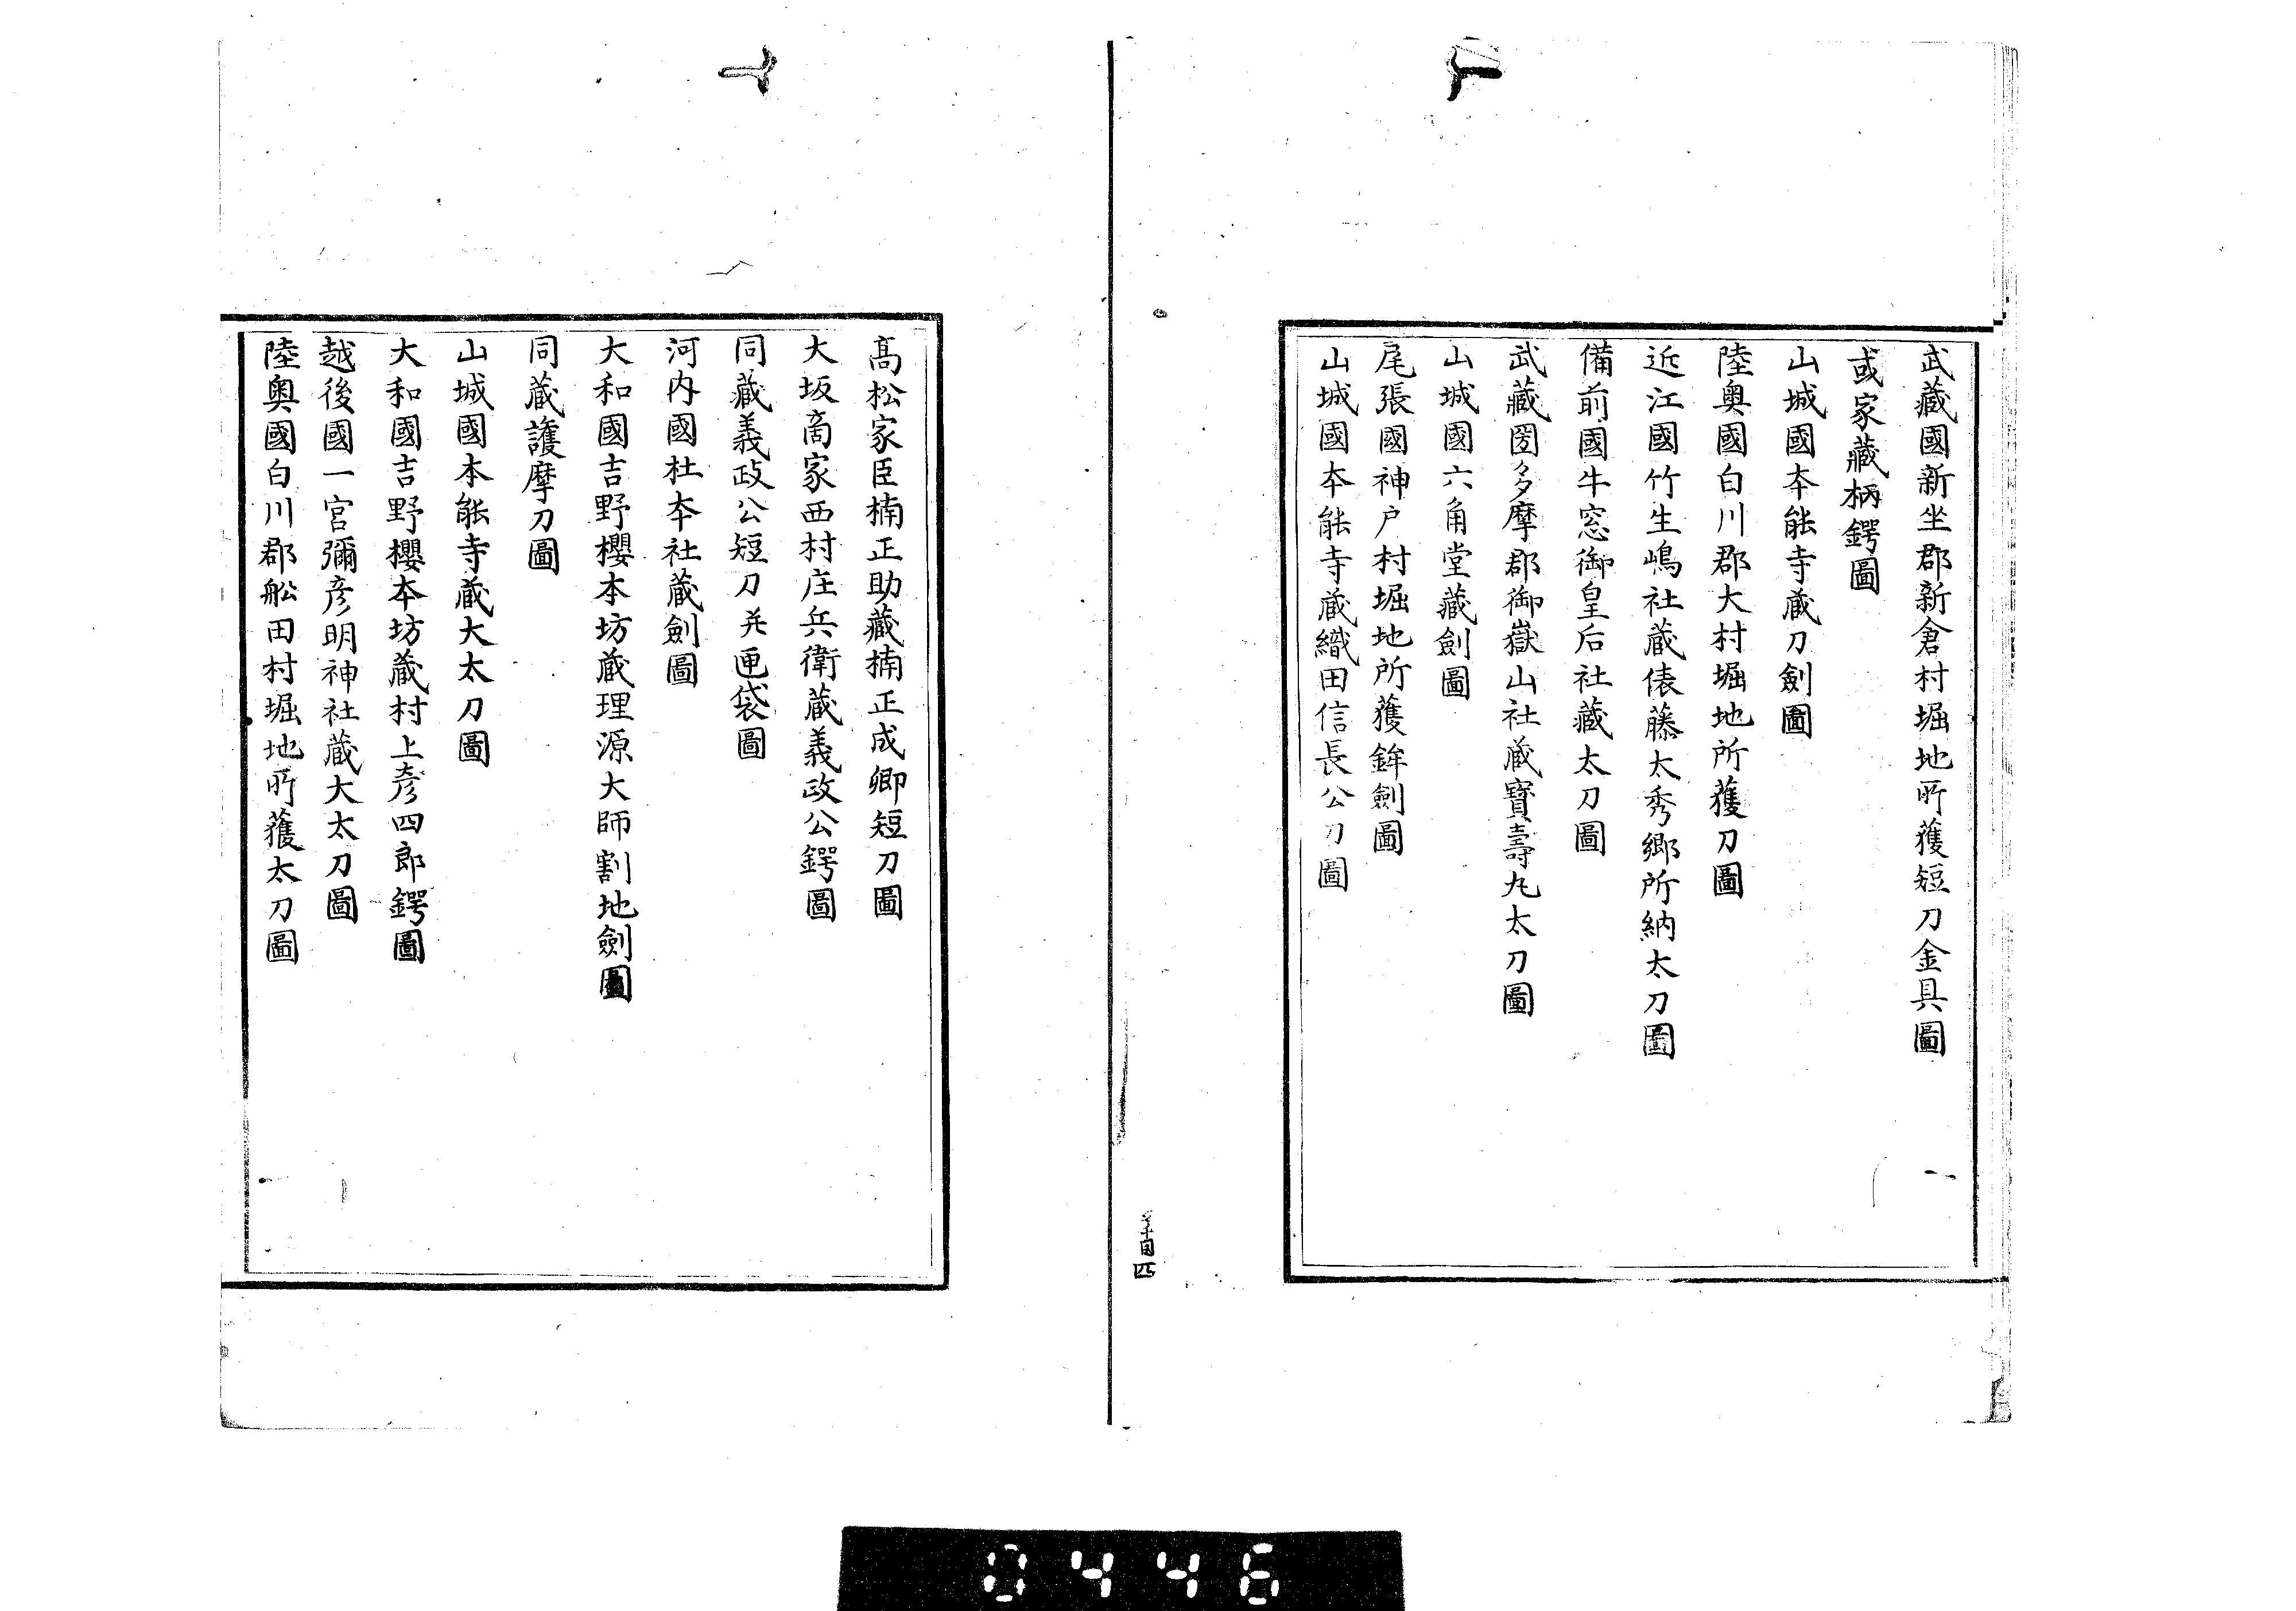 武藏國新坐郡新倉村堀地所獲短刀金具圖
或家藏柄鍔圖
山城國本能寺蔵刀劍圖
陸奥國白川郡大村堀地所獲刀圖
近江國竹生嶋社蔵俵藤太秀郷所納太刀圖
備前國牛窓御皇后社藏太刀圖
武藏圀多摩郡御嶽山社蔵寳壽丸太刀圖
山城國六角堂藏劍圖
尾張國神戸村堀地所獲鉾劍圖
山城國本能寺蔵織田信長公刀圖
高松家臣楠正助藏楠正成卿短刀圖
大坂商家西村庄兵衛蔵義政公鍔圖
同蔵義政公短刀并匣袋圖
河内國杜本社蔵劍圖
大和國吉野櫻本坊蔵理源大師割地劍圖
同蔵護摩刀圖
山城國本能寺蔵大太刀圖
大和國吉野櫻本坊蔵村上彦四郎鍔圖
越後國一宮彌彦明神社蔵大太刀圖
陸奥國白川郡舩田村堀地所獲太刀圖
目四
0446